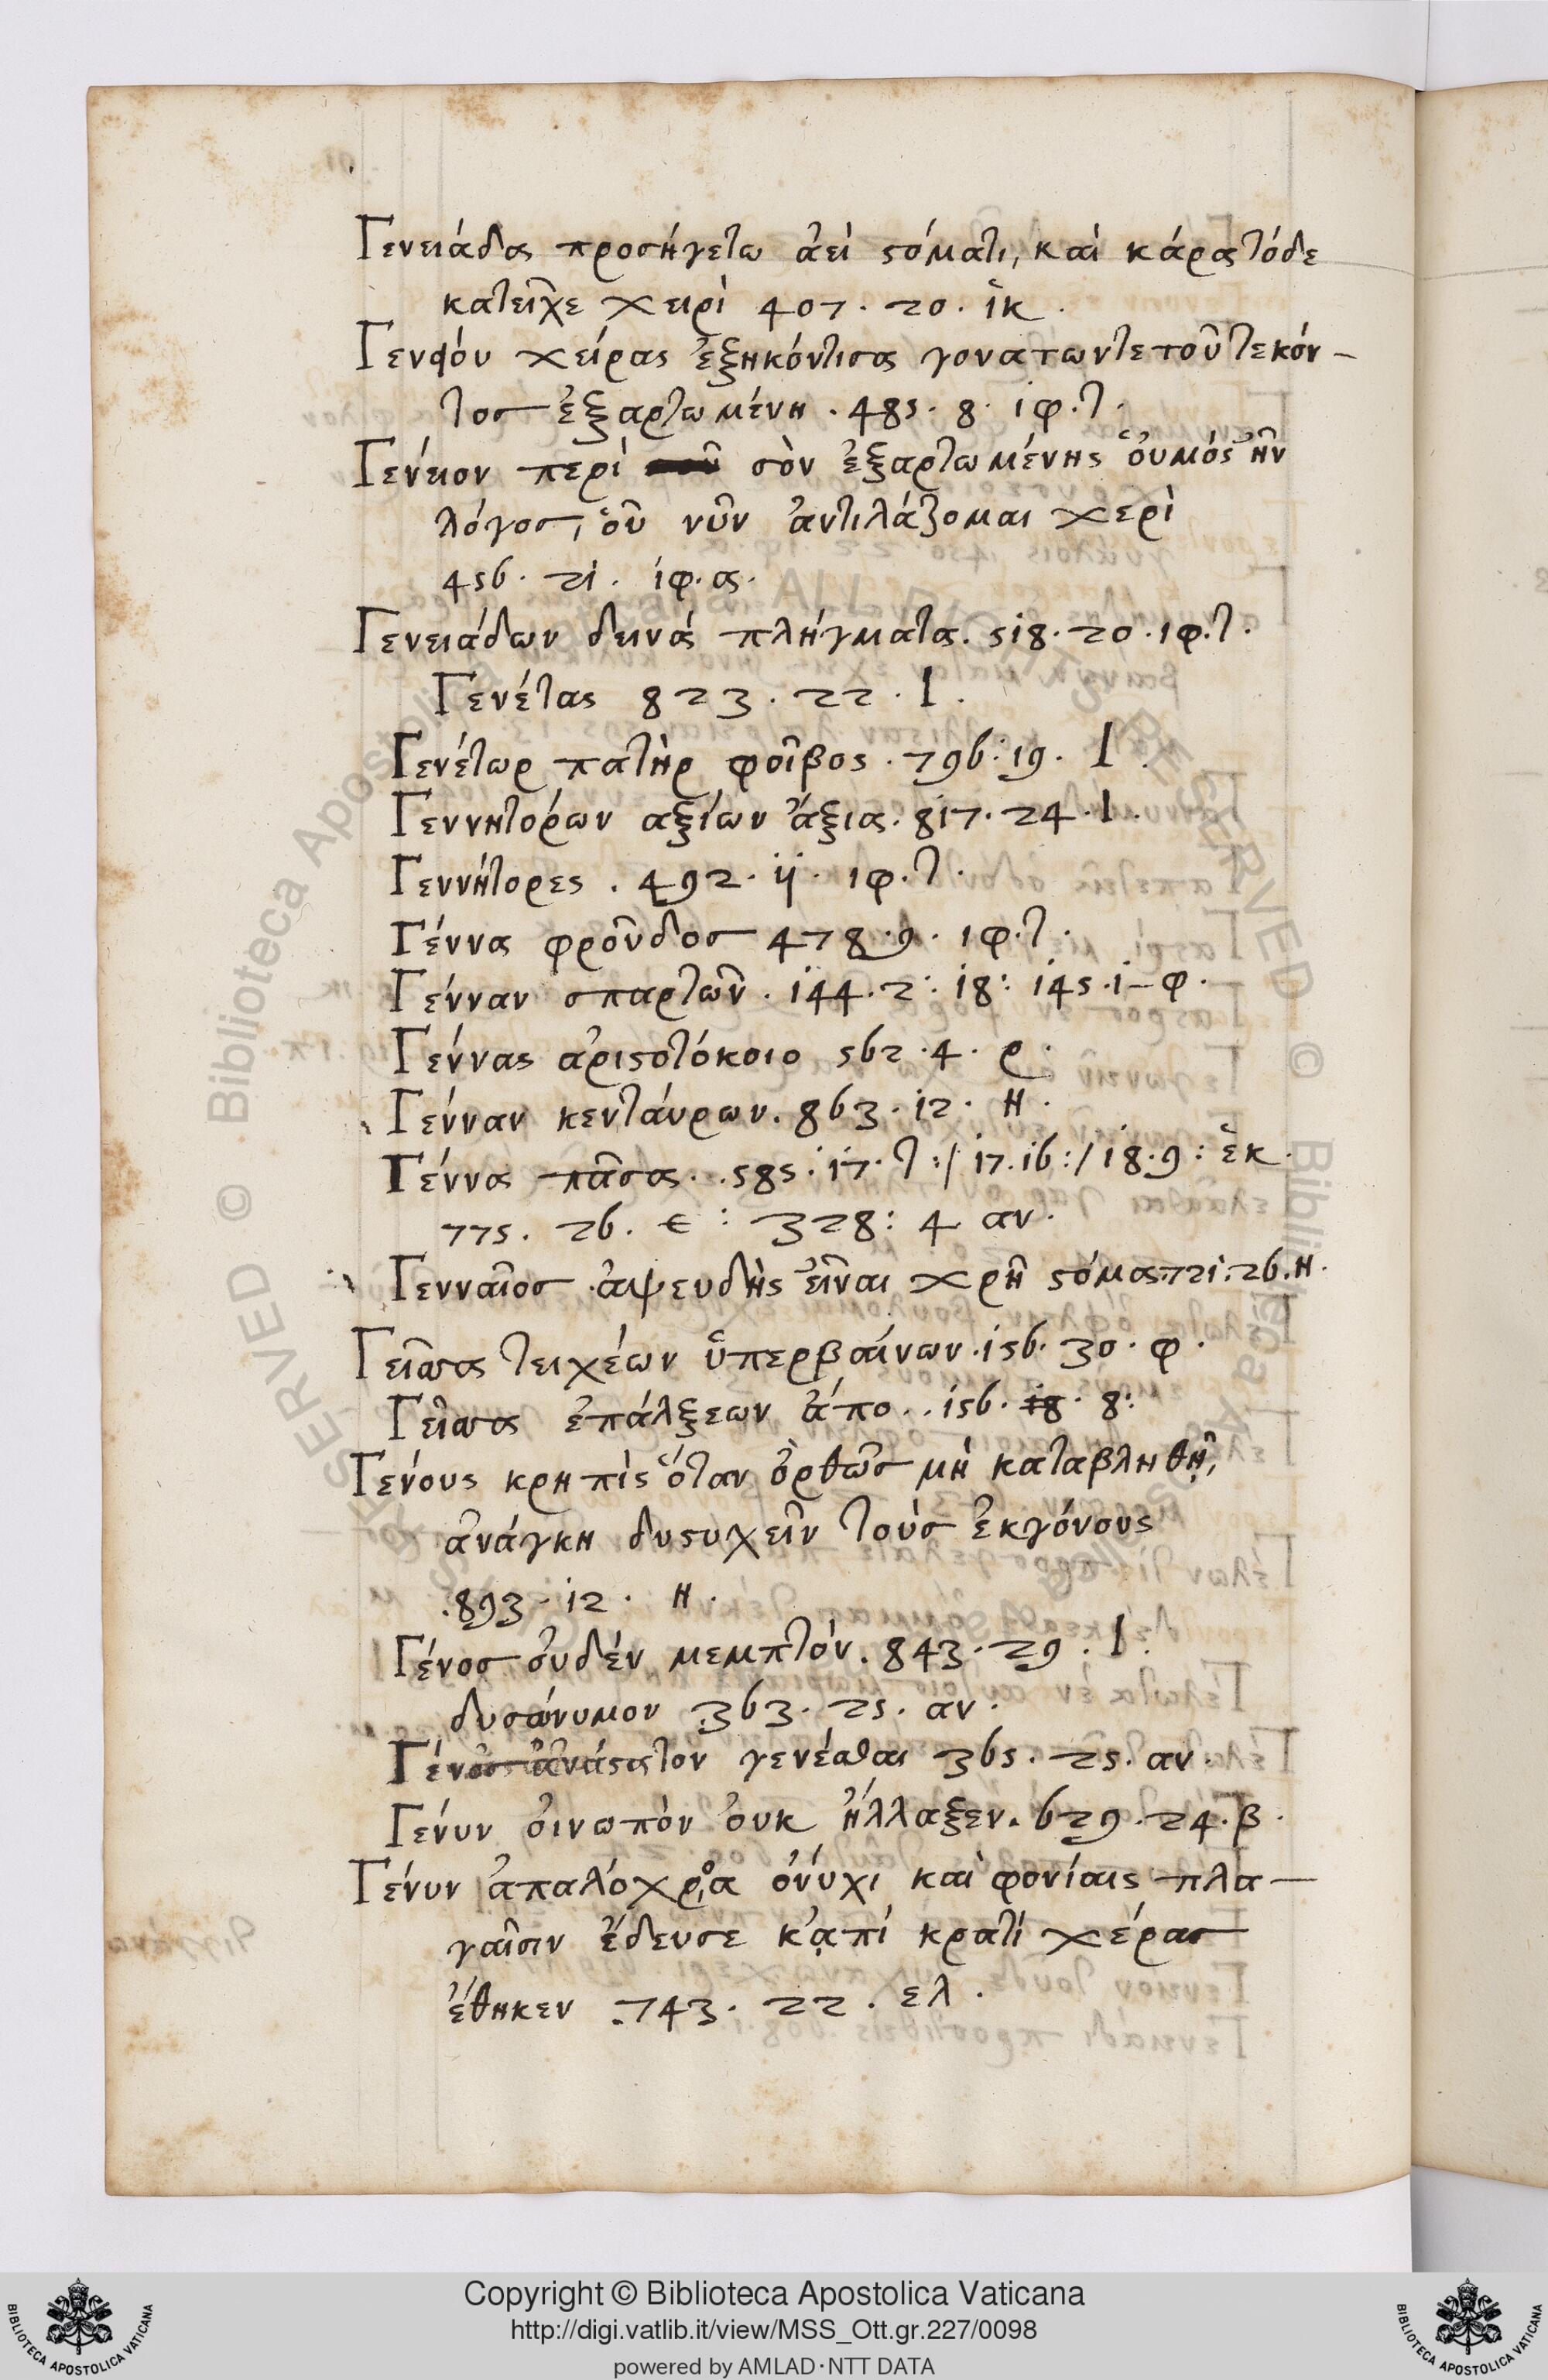 Γενειάδα προσήγετω ἀεὶ στόματι, καὶ κάρα τόδε
κατεῖχε χειρὶ 407. 20. ἱκ.
χείρας ἐξηκόντισα γονατων τε τοῦ τεκόν-
τος ἐξαρτωμένη. 485. 8. ἰφ. τ.
Γενείον περὶ σὸν ἐξαρτωμένης οὑμός ἦν
λόγος, οὗ νῦν ἀντιλάζομαι χερὶ
456. 21. ἰφ. α.
Γενειάδων δεινά πλήγματα. 518. 20. ιφ. τ.
Γενέτας 823. 22. Ι.
Γενέτωρ πατὴρ φοῖβος. 796. 19. Ι.
Γεννητόρων αξίων ἄξια. 817. 24. Ι.
Γεννήτορες. 492. ιφ. τ.
Γέννα φροῦδος 478. 9. ιφ. τ.
Γένναν σπαρτῶν. 144. 2: 18: 145. 1 – φ.
Γέννας ἀριστοτόκοιο 562. 4. ρ.
Γένναν κενταύρων. 863. 12. Η.
Γέννα πᾶσα.. 585. 17. τ:/ 17. 16:/ 18. 9: ἑκ.
775. 26. ε: 328: 4 αν.
Γενναῖος ἀψευδὴς εἶναι χρῆ στόμα: 721: 26. Η.
Γεῖσα τειχέων ὑπερβαίνων. 156. 30. φ.
Γεῖσα ἐπάλξεων ἄπο.. 156. 8:
Γένους κρηπὶς ὅταν ὀρθῶς μὴ καταβληθῇ,
ἀνάγκη δυστυχεῖν τοὺς ἐκγόνους
.893. 12. Η.
Γένος οὐδέν μεμπτόν. 843. 29. Ι.
δυσώνυμον 363. 25. αν.
Γένος ἀνάστατον γενέσθαι 365. 25. αν.
Γένυν οἰνωπὸν οὐκ ἤλλαξεν. 629. 24. β.
Γένυν ἁπαλόχροα ὀνύχι καὶ φονίαις πλα-
γαῖσιν ἔδευσε κἀπί κρατί χέρας
ἔθηκεν .743. 22. ελ.
Copyright © Biblioteca Apostolica Vaticana
http://digi.vatlib.it/view/MSS_Ott.gr.227/0098
powered by AMLAD·NTT DATA
BIBLIOTECA APOSTOLICA VATICANA
BIBLIOTECA APOSTOLICA VATICANA